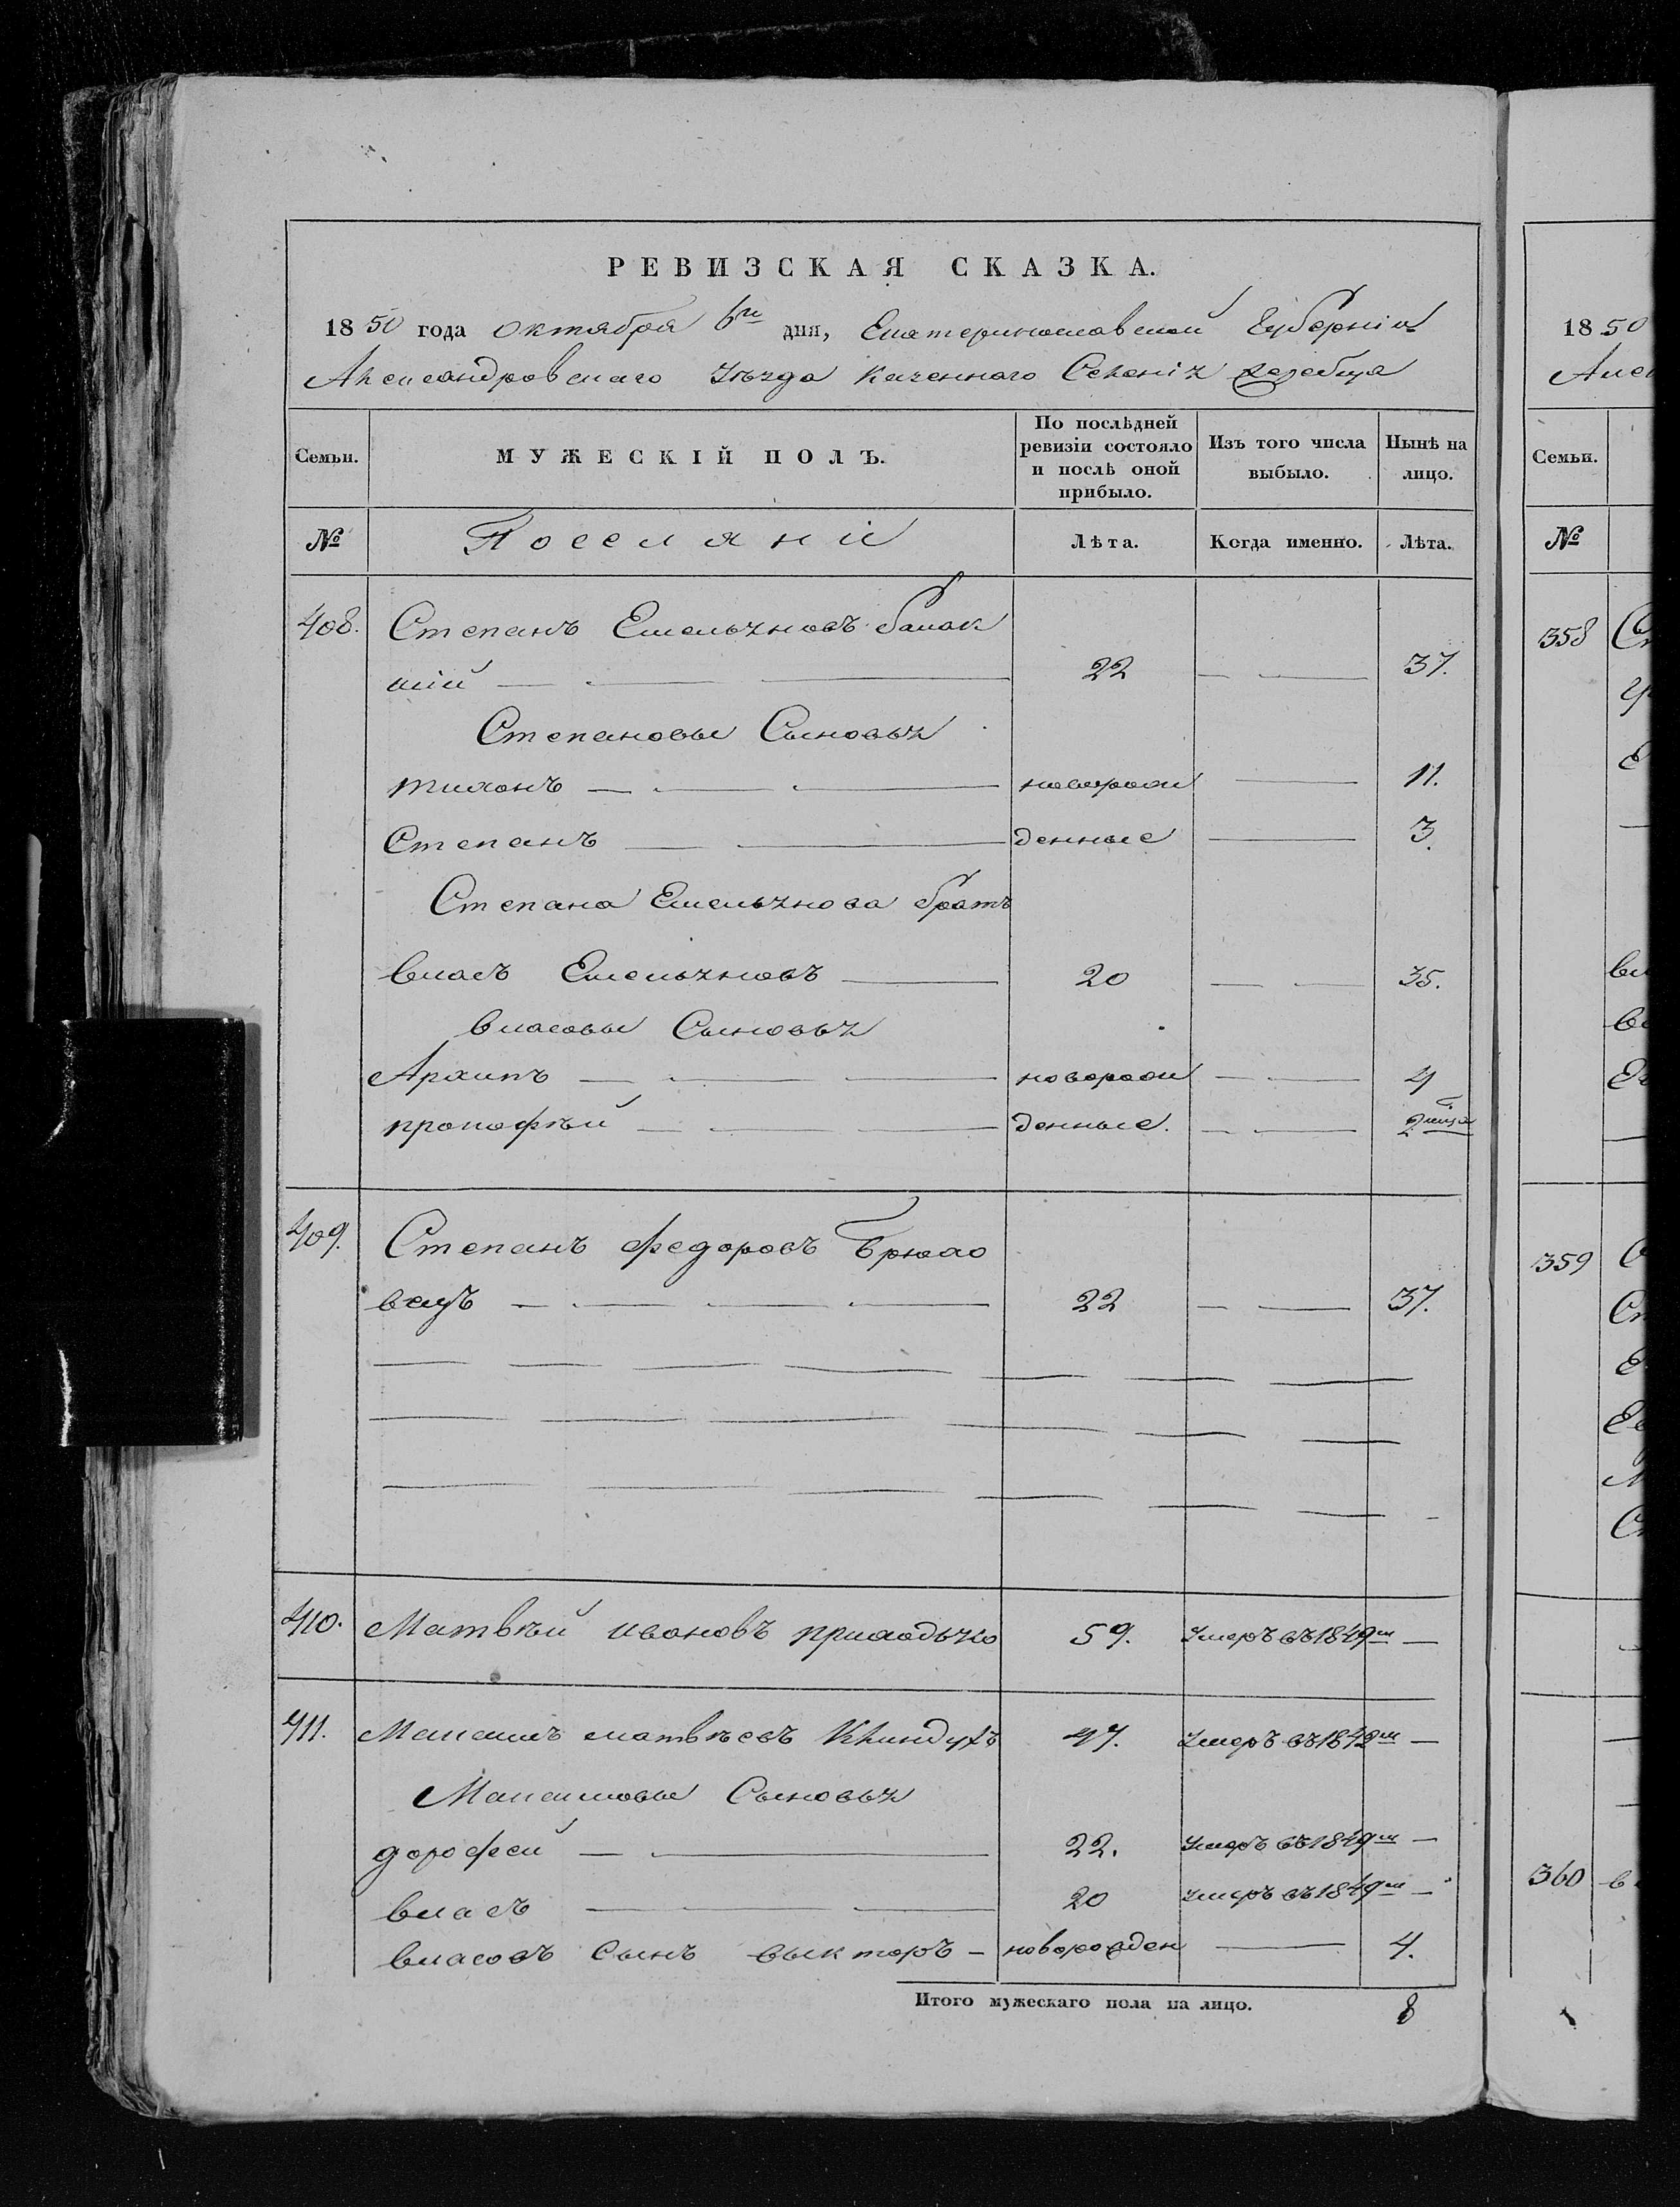 РЕВИЗСКАЯ СКАЗКА.
1850 года октября 6го дня, Екатеринославской Губерніи
Александровскаго Уѣзда Казеннаго Селенія
Семьи. МУЖЕСКІЙ ПОЛЪ. По послѣдней ревизіи состояло и послѣ оной прибыло. Изъ того числа выбыло. Нынѣ на лицо.
№ Поселяніи Лѣта. Когда именно. Лѣта.
408. Степанъ Емельяновъ
кій 22 37.
Степановы Сыновья
тихонъ новорож 11.
Степанъ денные 3.
Степана Емельянова братъ
власъ Емельяновъ 20 35.
власовы Сыновья
Архипъ новорож 4
прокофѣй денные. 2 мѣся
409. Степанъ федоровъ Брюхо
вецъ 22 37.
410. Матвѣй ивановъ приходько 59. Умеръ въ 1849м
411. Максимъ матвѣевъ 47. Умеръ въ 1848м
Максимовы Сыновья
дорофей 22. Умеръ въ 1849м
власъ 20 Умеръ въ 1849м
власовъ Сынъ выкторъ новорожден 4.
Итого мужескаго пола на лицо. 8
1850
Алек
Семьи.
№
358
359
360